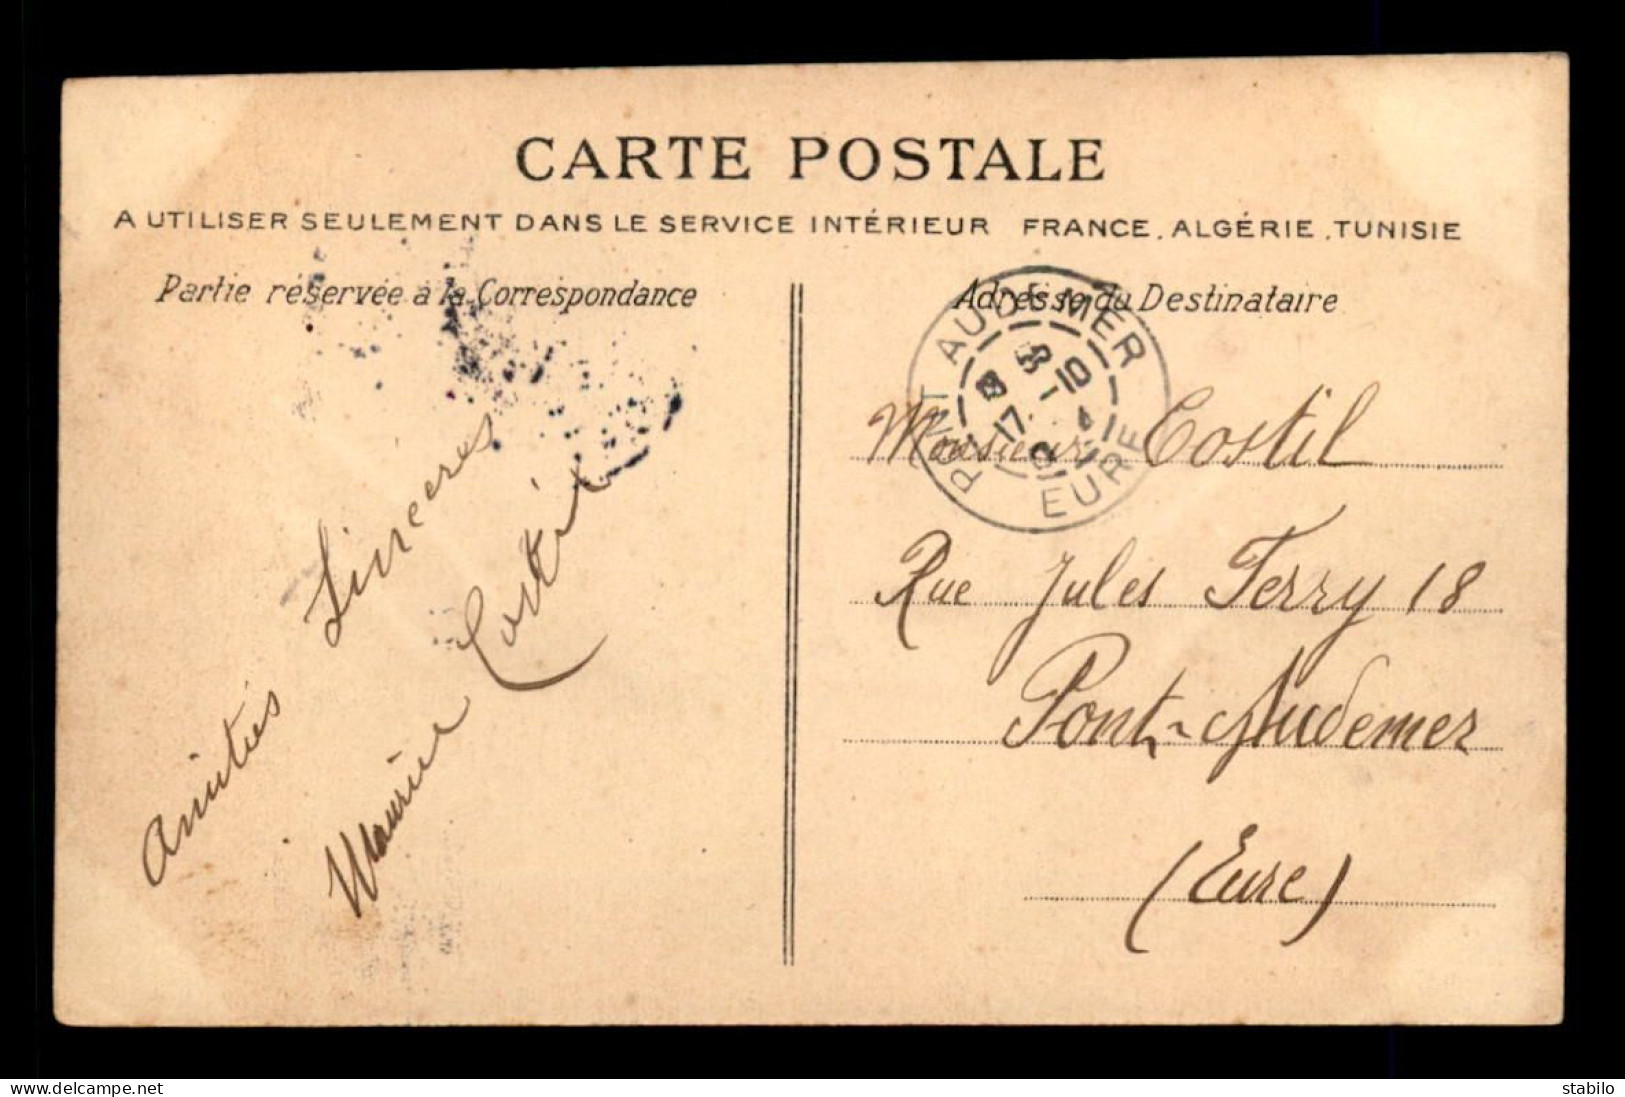 CARTE POSTALE
A UTILISER SEULEMENT DANS LE SERVICE INTÉRIEUR FRANCE, ALGÉRIE, TUNISIE
Partie réservée à la Correspondance
Adresse du Destinataire
PONT AUDEMER
17 -10
EURE
Amitiés Sincères
Maurice
Monsieur Costil
Rue Jules Ferry 18
Pont-Audemer
(Eure)
www.delcampe.net
stabilo